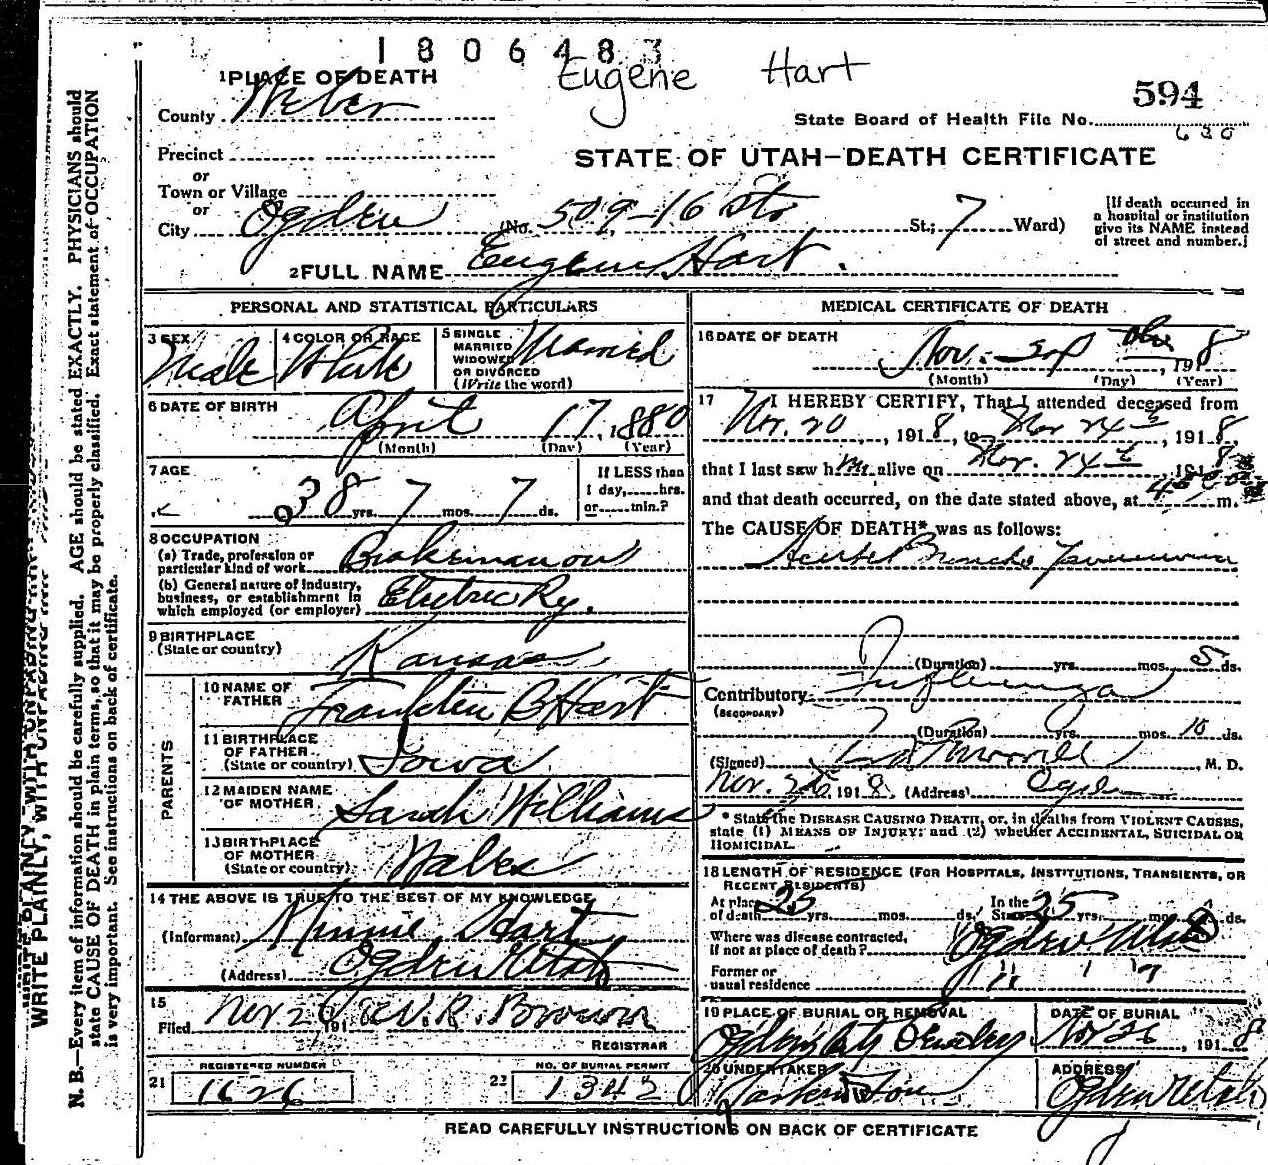 1806483
Eugene Hart
1 PLACE OF DEATH
County Weber
594
State Board of Health File No.
630
Precinct
or
STATE OF UTAH—DEATH CERTIFICATE
Town or Village
or
City Ogden (No. 509-16 St; St.; 7 Ward)
[If death occurred in a hospital or institution give its NAME instead of street and number.]
2 FULL NAME Eugene Hart.
PERSONAL AND STATISTICAL PARTICULARS
3 SEX Male
4 COLOR OR RACE White
5 SINGLE MARRIED WIDOWED OR DIVORCED (Write the word) Married
6 DATE OF BIRTH
April 17, 1880
(Month) (Day) (Year)
7 AGE
38 yrs. 7 mos. 7 ds.
If LESS than 1 day, hrs. or min.?
8 OCCUPATION
(a) Trade, profession or particular kind of work Brakeman on
(b) General nature of industry, business, or establishment in which employed (or employer) Electric Ry.
9 BIRTHPLACE
(State or country) Kansas
PARENTS
10 NAME OF FATHER Franklin B Hart
11 BIRTHPLACE OF FATHER (State or country) Iowa
12 MAIDEN NAME OF MOTHER Sarah Williams
13 BIRTHPLACE OF MOTHER (State or country) Wales
14 THE ABOVE IS TRUE TO THE BEST OF MY KNOWLEDGE
(Informant) Minnie Hart
(Address) Ogden Utah
15
Filed Nov 26, 1918 W.R. Brown
REGISTRAR
REGISTERED NUMBER
21 1626
NO. OF BURIAL PERMIT
22 1342
MEDICAL CERTIFICATE OF DEATH
16 DATE OF DEATH
Nov. , 1918
(Month) (Day) (Year)
17 I HEREBY CERTIFY, That I attended deceased from
Nov. 20, 1918, to Nov 24th, 1918,
that I last saw him alive on Nov. 24th, 1918
and that death occurred, on the date stated above, at m.
The CAUSE OF DEATH* was as follows:
Acute Broncho Pneumonia
(Duration) yrs. mos. 5 ds.
Contributory Influenza
(SECONDARY)
(Duration) yrs. mos. 10 ds.
(Signed) Morrell, M. D.
Nov. 25 1918, (Address) Ogden
* State the DISEASE CAUSING DEATH, or, in deaths from VIOLENT CAUSES,
state (1) MEANS OF INJURY; and (2) whether ACCIDENTAL, SUICIDAL OR
HOMICIDAL.
18 LENGTH OF RESIDENCE (FOR HOSPITALS, INSTITUTIONS, TRANSIENTS, OR
RECENT RESIDENTS)
At place of death 25 yrs. mos. ds. In the State 25 yrs. mos. ds.
Where was disease contracted, if not at place of death? Ogden Utah
Former or usual residence " " "
19 PLACE OF BURIAL OR REMOVAL
Ogden City Cemetery
DATE OF BURIAL
Nov 26, 1918
20 UNDERTAKER
Larkin & Son
ADDRESS
Ogden Utah
READ CAREFULLY INSTRUCTIONS ON BACK OF CERTIFICATE
WRITE PLAINLY, WITH UNFADING INK
N. B.—Every item of information should be carefully supplied. AGE should be stated EXACTLY. PHYSICIANS should
state CAUSE OF DEATH in plain terms, so that it may be properly classified. Exact statement of OCCUPATION
is very important. See instructions on back of certificate.